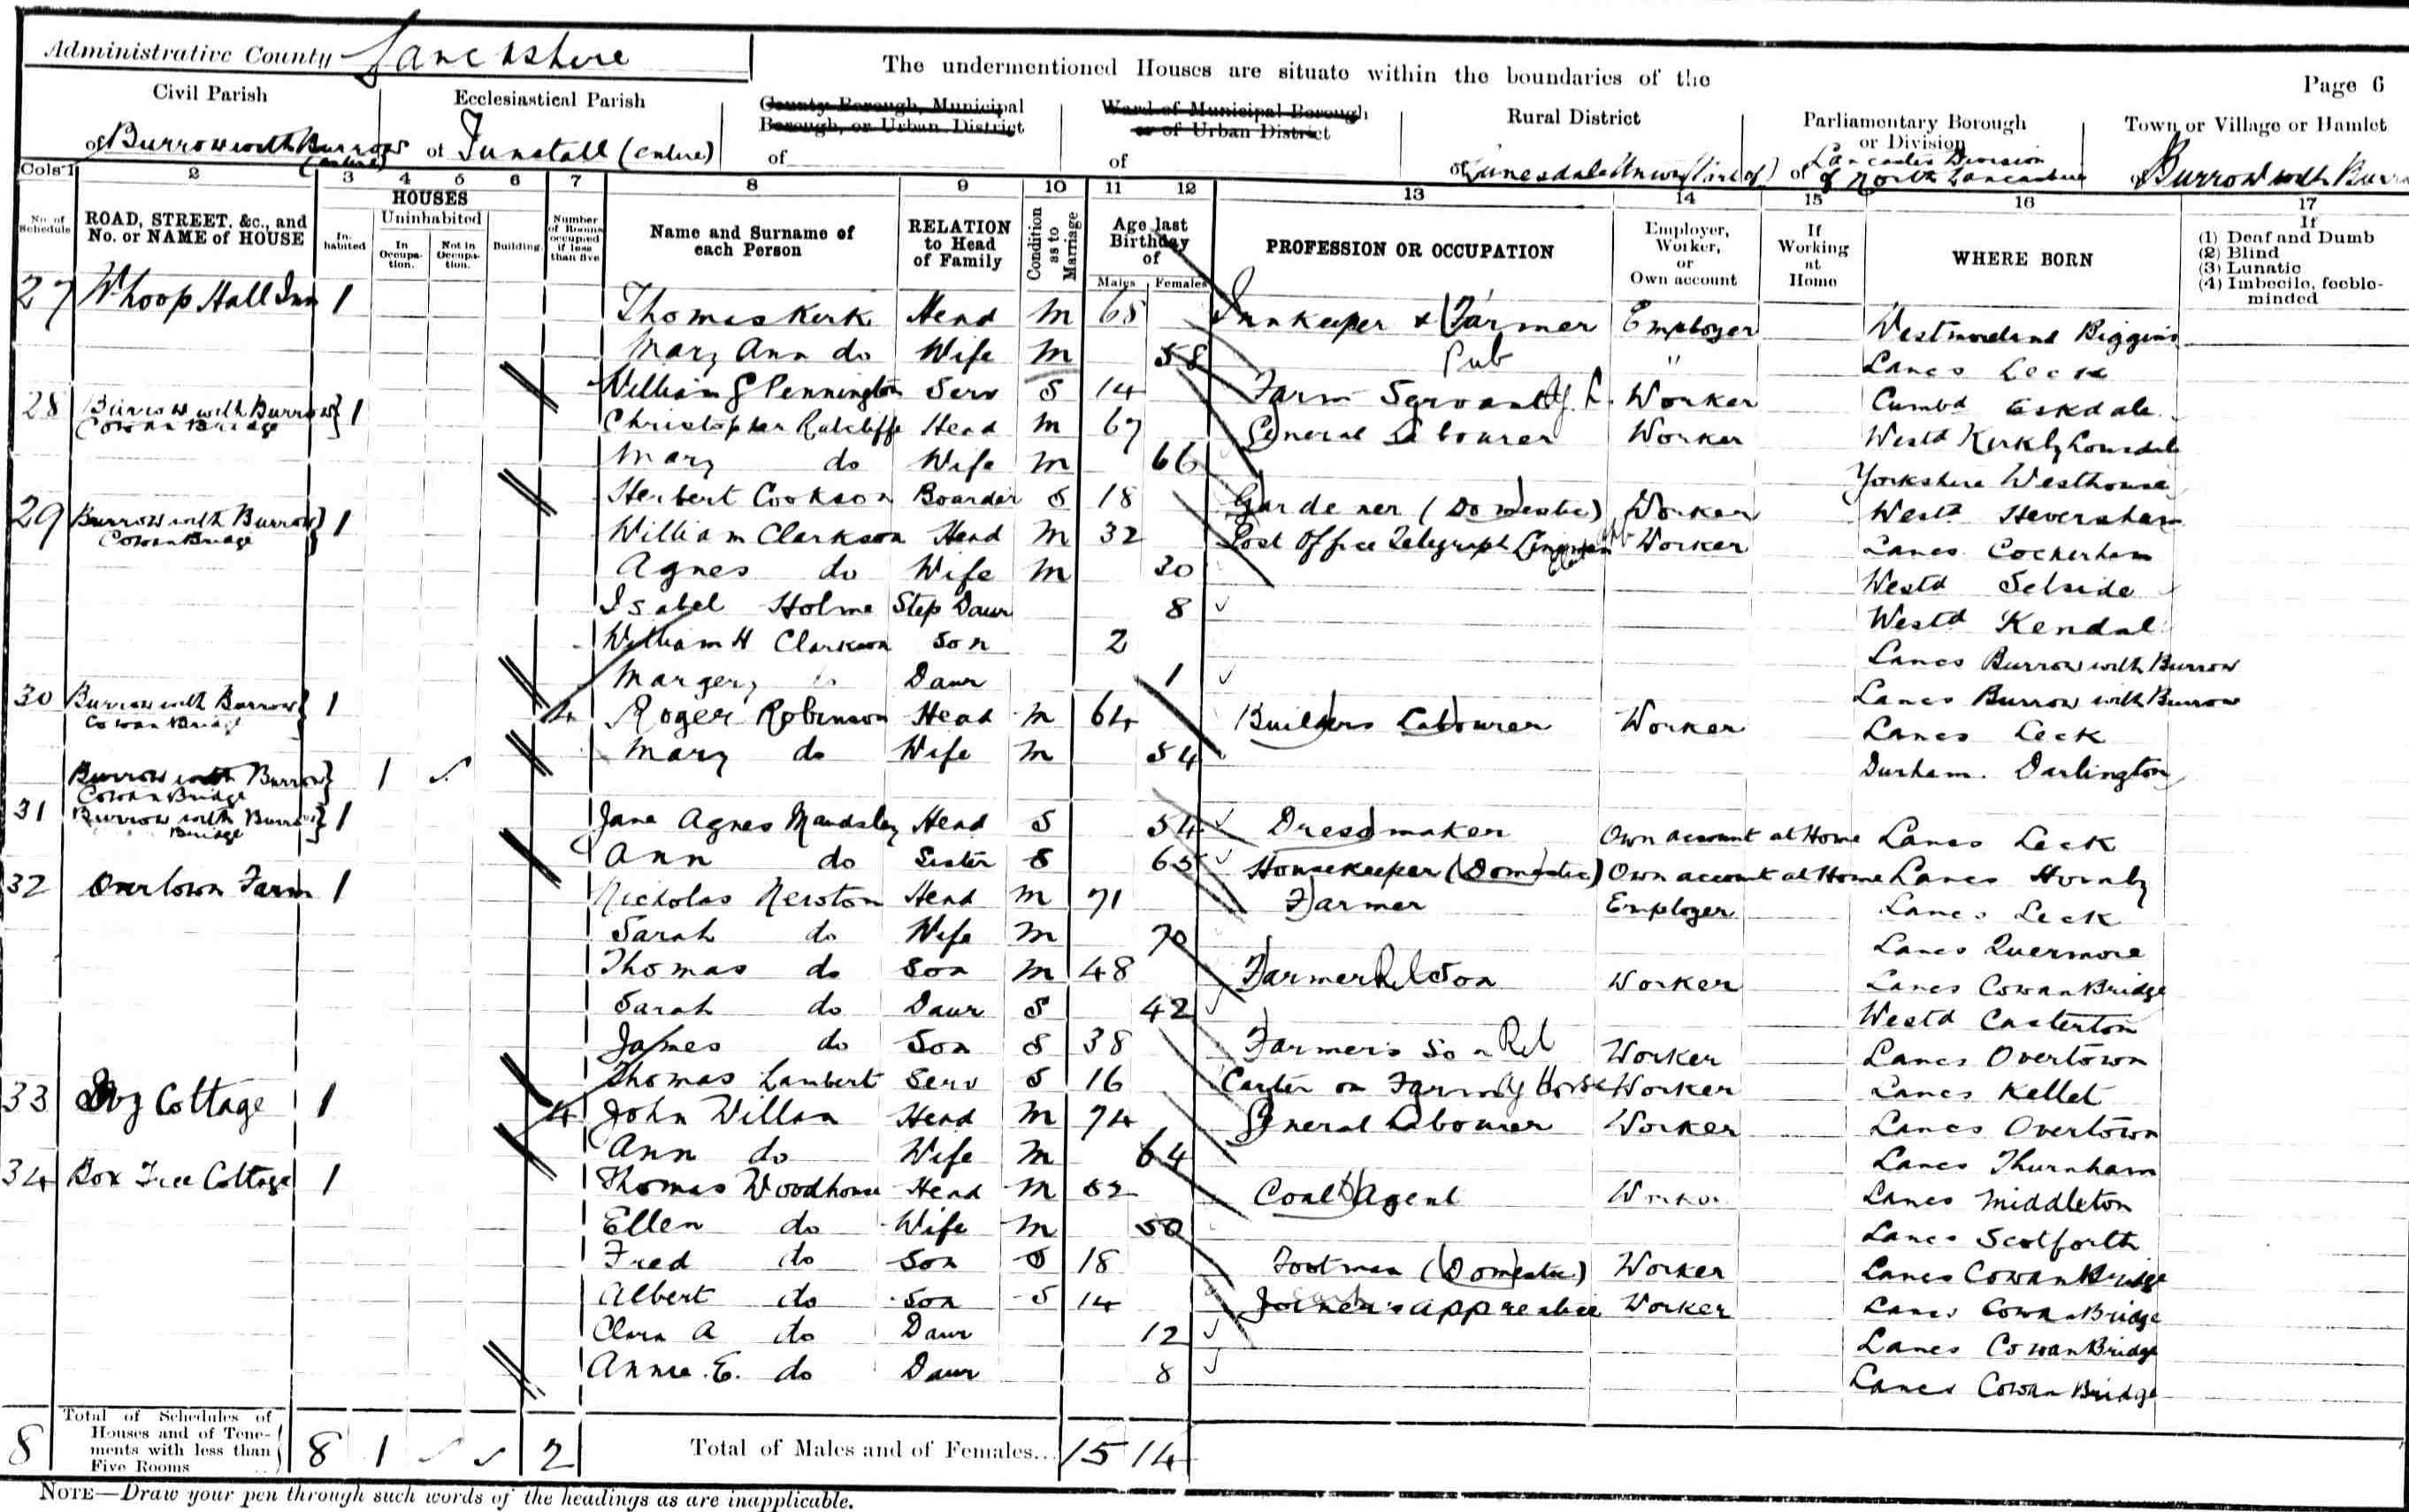 Administrative County Lancashire
The undermentioned Houses are situate within the boundaries of the
Page 6
Civil Parish
of Burrow with Burrow (entire)
Ecclesiastical Parish
of Tunstall (entire)
County Borough, Municipal Borough, or Urban District
of
Ward of Municipal Borough or of Urban District
of
Rural District
of Lunesdale Union (part of)
Parliamentary Borough or Division
of Lancaster Division of North Lancashire
Town or Village or Hamlet
of Burrow with Burrow
Cols 1 2 3 4 5 6 7 8 9 10 11 12 13 14 15 16 17
No. of Schedule
ROAD, STREET, &c., and No. or NAME of HOUSE
HOUSES
Inhabited
Uninhabited
In Occupation.
Not in Occupation.
Building.
Number of Rooms occupied if less than five
Name and Surname of each Person
RELATION to Head of Family
Condition as to Marriage
Age last Birthday of
Males Females
PROFESSION OR OCCUPATION
Employer, Worker, or Own account
If Working at Home
WHERE BORN
If
(1) Deaf and Dumb
(2) Blind
(3) Lunatic
(4) Imbecile, feeble-minded
27 Whoop Hall Inn 1 Thomas Kirk Head M 65 Innkeeper & Farmer Employer Westmoreland Biggins
Mary Ann do Wife M 58 Pub " Lancs Leck
William G Pennington Serv S 14 Farm Servant Worker Cumbd Eskdale
28 Burrow with Burrow Cowan Bridge 1 Christopher Ratcliffe Head M 67 General Labourer Worker Westd Kirkby Lonsdale
Mary do Wife M 66 Yorkshire Westhouse
Herbert Cookson Boarder S 18 Gardener (Domestic) Worker Westd Heversham
29 Burrow with Burrow Cowan Bridge 1 William Clarkson Head M 32 Post Office Telegraph Lineman Worker Lancs Cockerham
Agnes do Wife M 30 Westd Selside
Isabel Holme Step Daur 8 Westd Kendal
William H Clarkson Son 2 Lancs Burrow with Burrow
Margery do Daur 1 Lancs Burrow with Burrow
30 Burrow with Burrow Cowan Bridge 1 4 Roger Robinson Head M 64 Builders Labourer Worker Lancs Leck
Mary do Wife M 54 Durham. Darlington
Burrow with Burrow Cowan Bridge 1
31 Burrow with Burrow Bridge 1 Jane Agnes Mandsley Head S 54 Dressmaker Own account at Home Lancs Leck
Ann do Sister S 65 Housekeeper (Domestic) Own account at Home Lancs Hornby
32 Overtown Farm 1 Nicholas Newton Head M 71 Farmer Employer Lancs Leck
Sarah do Wife M 70 Lancs Quermore
Thomas do Son M 48 Farmer Rel Son Worker Lancs Cowan Bridge
Sarah do Daur S 42 Westd Casterton
James do Son S 38 Farmers Son Rel Worker Lancs Overtown
Thomas Lambert Serv S 16 Carter on Farm Horse Worker Lancs Kellet
33 Ivy Cottage 1 4 John Willan Head M 74 General Labourer Worker Lancs Overtown
Ann do Wife M 64 Lancs Thurnham
34 Box Tree Cottage 1 Thomas Woodhouse Head M 52 Coal Agent Worker Lancs Middleton
Ellen do Wife M 50 Lancs Scotforth
Fred do Son S 18 Footman (Domestic) Worker Lancs Cowan Bridge
Albert do Son S 14 Joiners apprentice Worker Lancs Cowan Bridge
Clara A do Daur 12 Lancs Cowan Bridge
Annie. E. do Daur 8 Lancs Cowan Bridge
8 Total of Schedules of Houses and of Tenements with less than Five Rooms 8 1 2 Total of Males and of Females... 15 14
NOTE—Draw your pen through such words of the headings as are inapplicable.